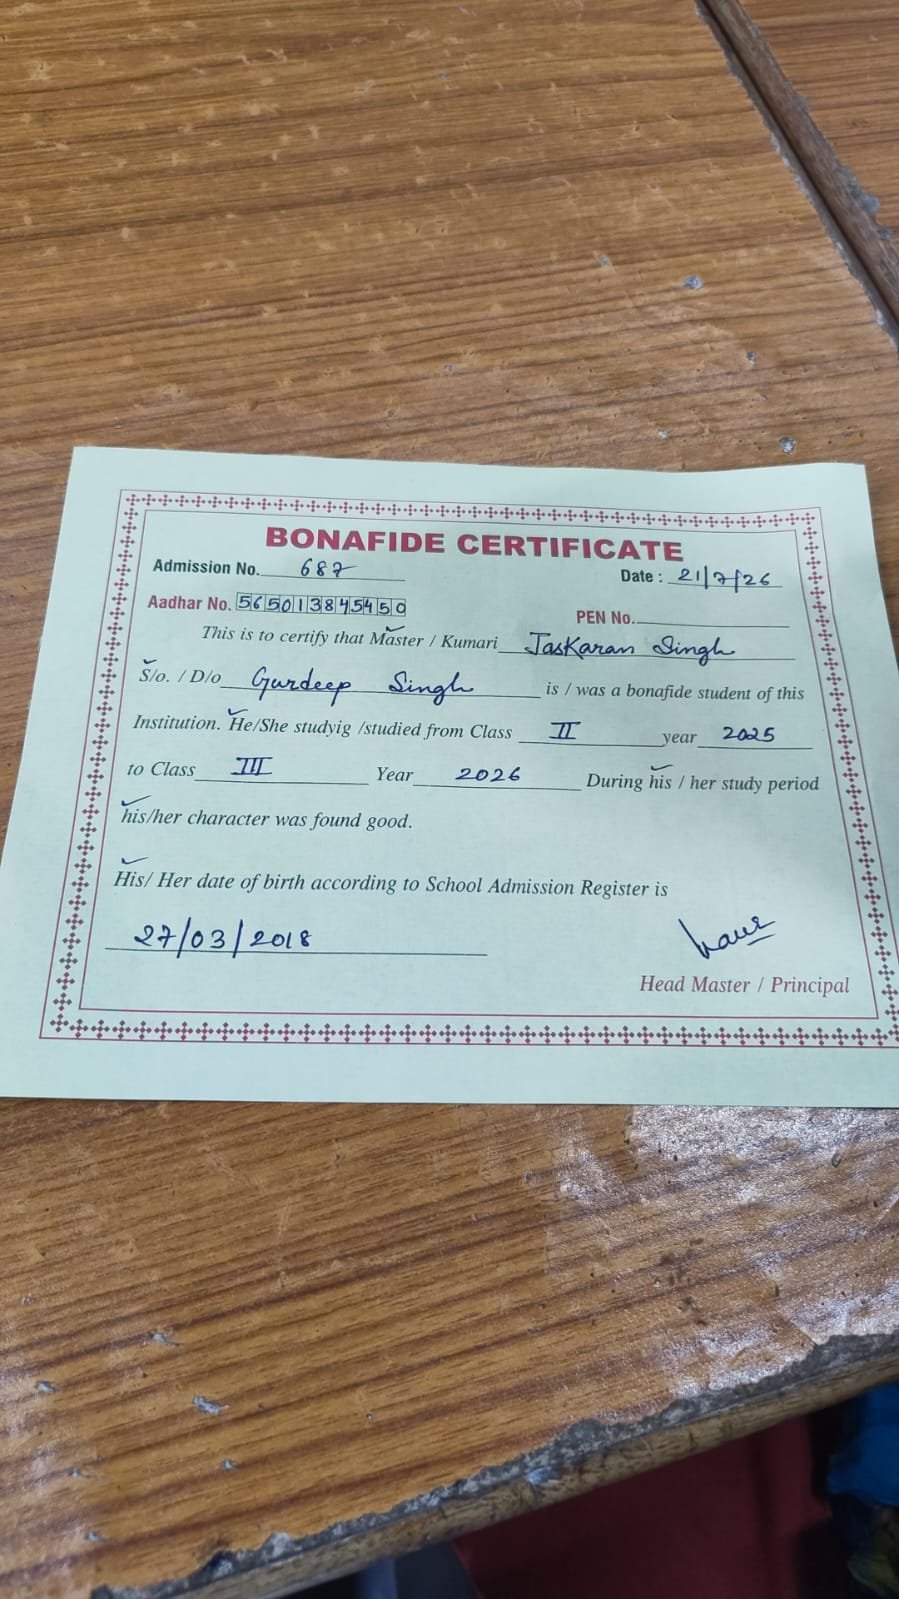 BONAFIDE CERTIFICATE
Admission No. 687
Date : 21/7/26
Aadhar No. 565013845450
PEN No.
This is to certify that Master / Kumari Jaskaran Singh
S/o. / D/o Gurdeep Singh is / was a bonafide student of this
Institution. He/She studyig /studied from Class II year 2025
to Class III Year 2026 During his / her study period
his/her character was found good.
His/ Her date of birth according to School Admission Register is
27/03/2018
Head Master / Principal